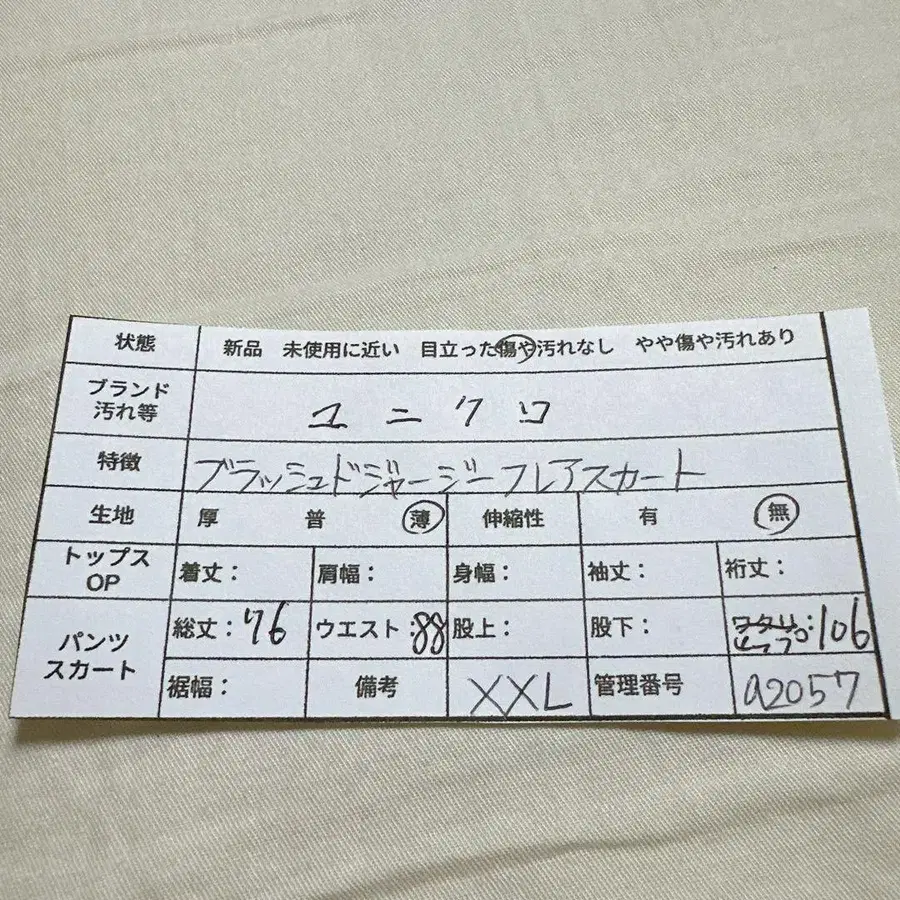 状態 新品 未使用に近い 目立った傷や汚れなし やや傷や汚れあり
ブランド 汚れ等 ユニクロ
特徴 ブラッシュドジャージーフレアスカート
生地 厚 普 薄 伸縮性 有 無
トップス OP 着丈： 肩幅： 身幅： 袖丈： 裄丈：
パンツ スカート 総丈：76 ウエスト：88 股上： 股下： ワタリ：106
ヒップ
裾幅： 備考 XXL 管理番号 a2057